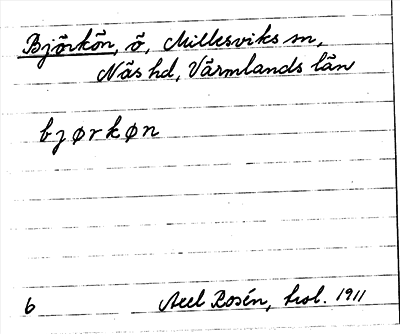 Björkön, ö, Millesviks sn,
Näs hd, Värmlands län
bjørkøn
6 Axel Rosén, 1911